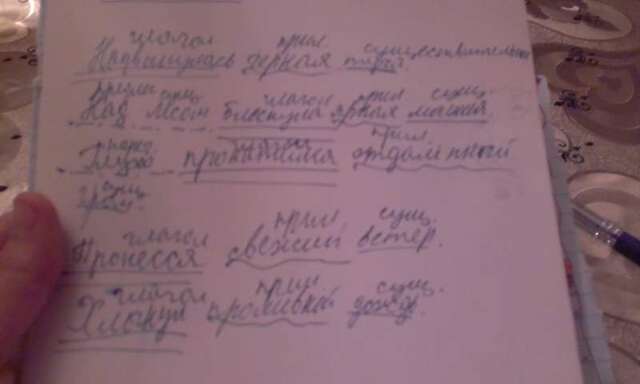 глагол прил существительное
Надвинулась черная туча.
предлог сущ. глагол прил сущ.
Над лесом блеснула яркая молния.
нареч. глагол прил.
Глухо прокатился отдаленный
сущ.
гром.
глагол прил сущ.
Пронесся свежий ветер.
глагол прил сущ.
Хлынул проливной дождь.